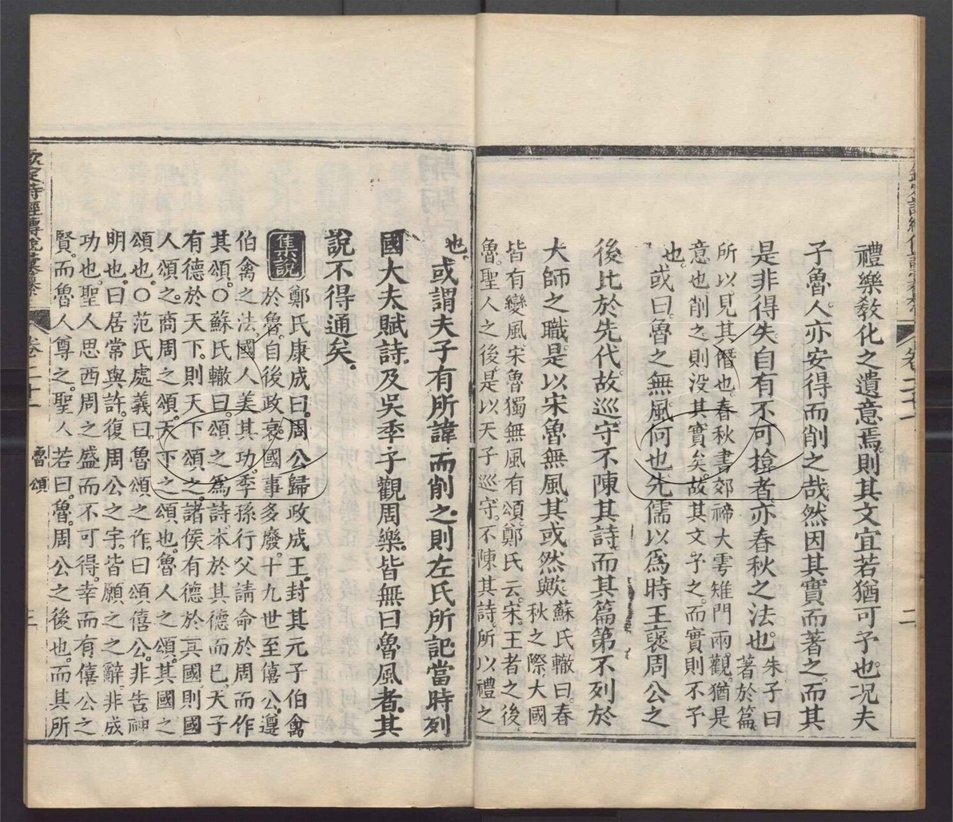 禮樂敎化之遺意焉則其文宜若猶可予也況夫
子魯人亦安得而削之哉然因其實而著之而其
是非得失自有不可揜者亦春秋之法也朱子曰著於篇
所以見其僭也春秋書郊禘大雩雉門兩觀猶是
意也削之則没其實矣故其文予之而實則不予
也或曰魯之無風何也先儒以為時王褒周公之
後比於先代故巡守不陳其詩而其篇第不列於
大師之職是以宋魯無風其或然歟蘇氏轍曰春秋之際大國
皆有變風宋魯獨無風有頌鄭氏云宋王者之後
魯聖人之後是以天子巡守不陳其詩所以禮之
二
也
或謂夫子有所諱而削之則左氏所記當時列
國大夫賦詩及吳季子觀周樂皆無曰魯風者其
說不得通矣
集說
鄭氏康成曰周公歸政成王封其元子伯禽
於魯自後政衰國事多廢十九世至僖公遵
伯禽之法國人美其功季孫行父請命於周而作
其頌〇蘇氏轍曰頌之為詩本於其德而已天子
有德於天下則天下頌之諸侯有德於其國則國
人頌之商周之頌天下之頌也魯人之頌其國之
頌也〇范氏處義曰魯頌之作曰頌僖公非告神
明也曰居常與許復周公之宇皆願之之辭非成
功也聖人思西周之盛而不可得幸而有僖公之
賢而魯人尊之聖人若曰魯周公之後也而其所
卷二十一
魯頌
三